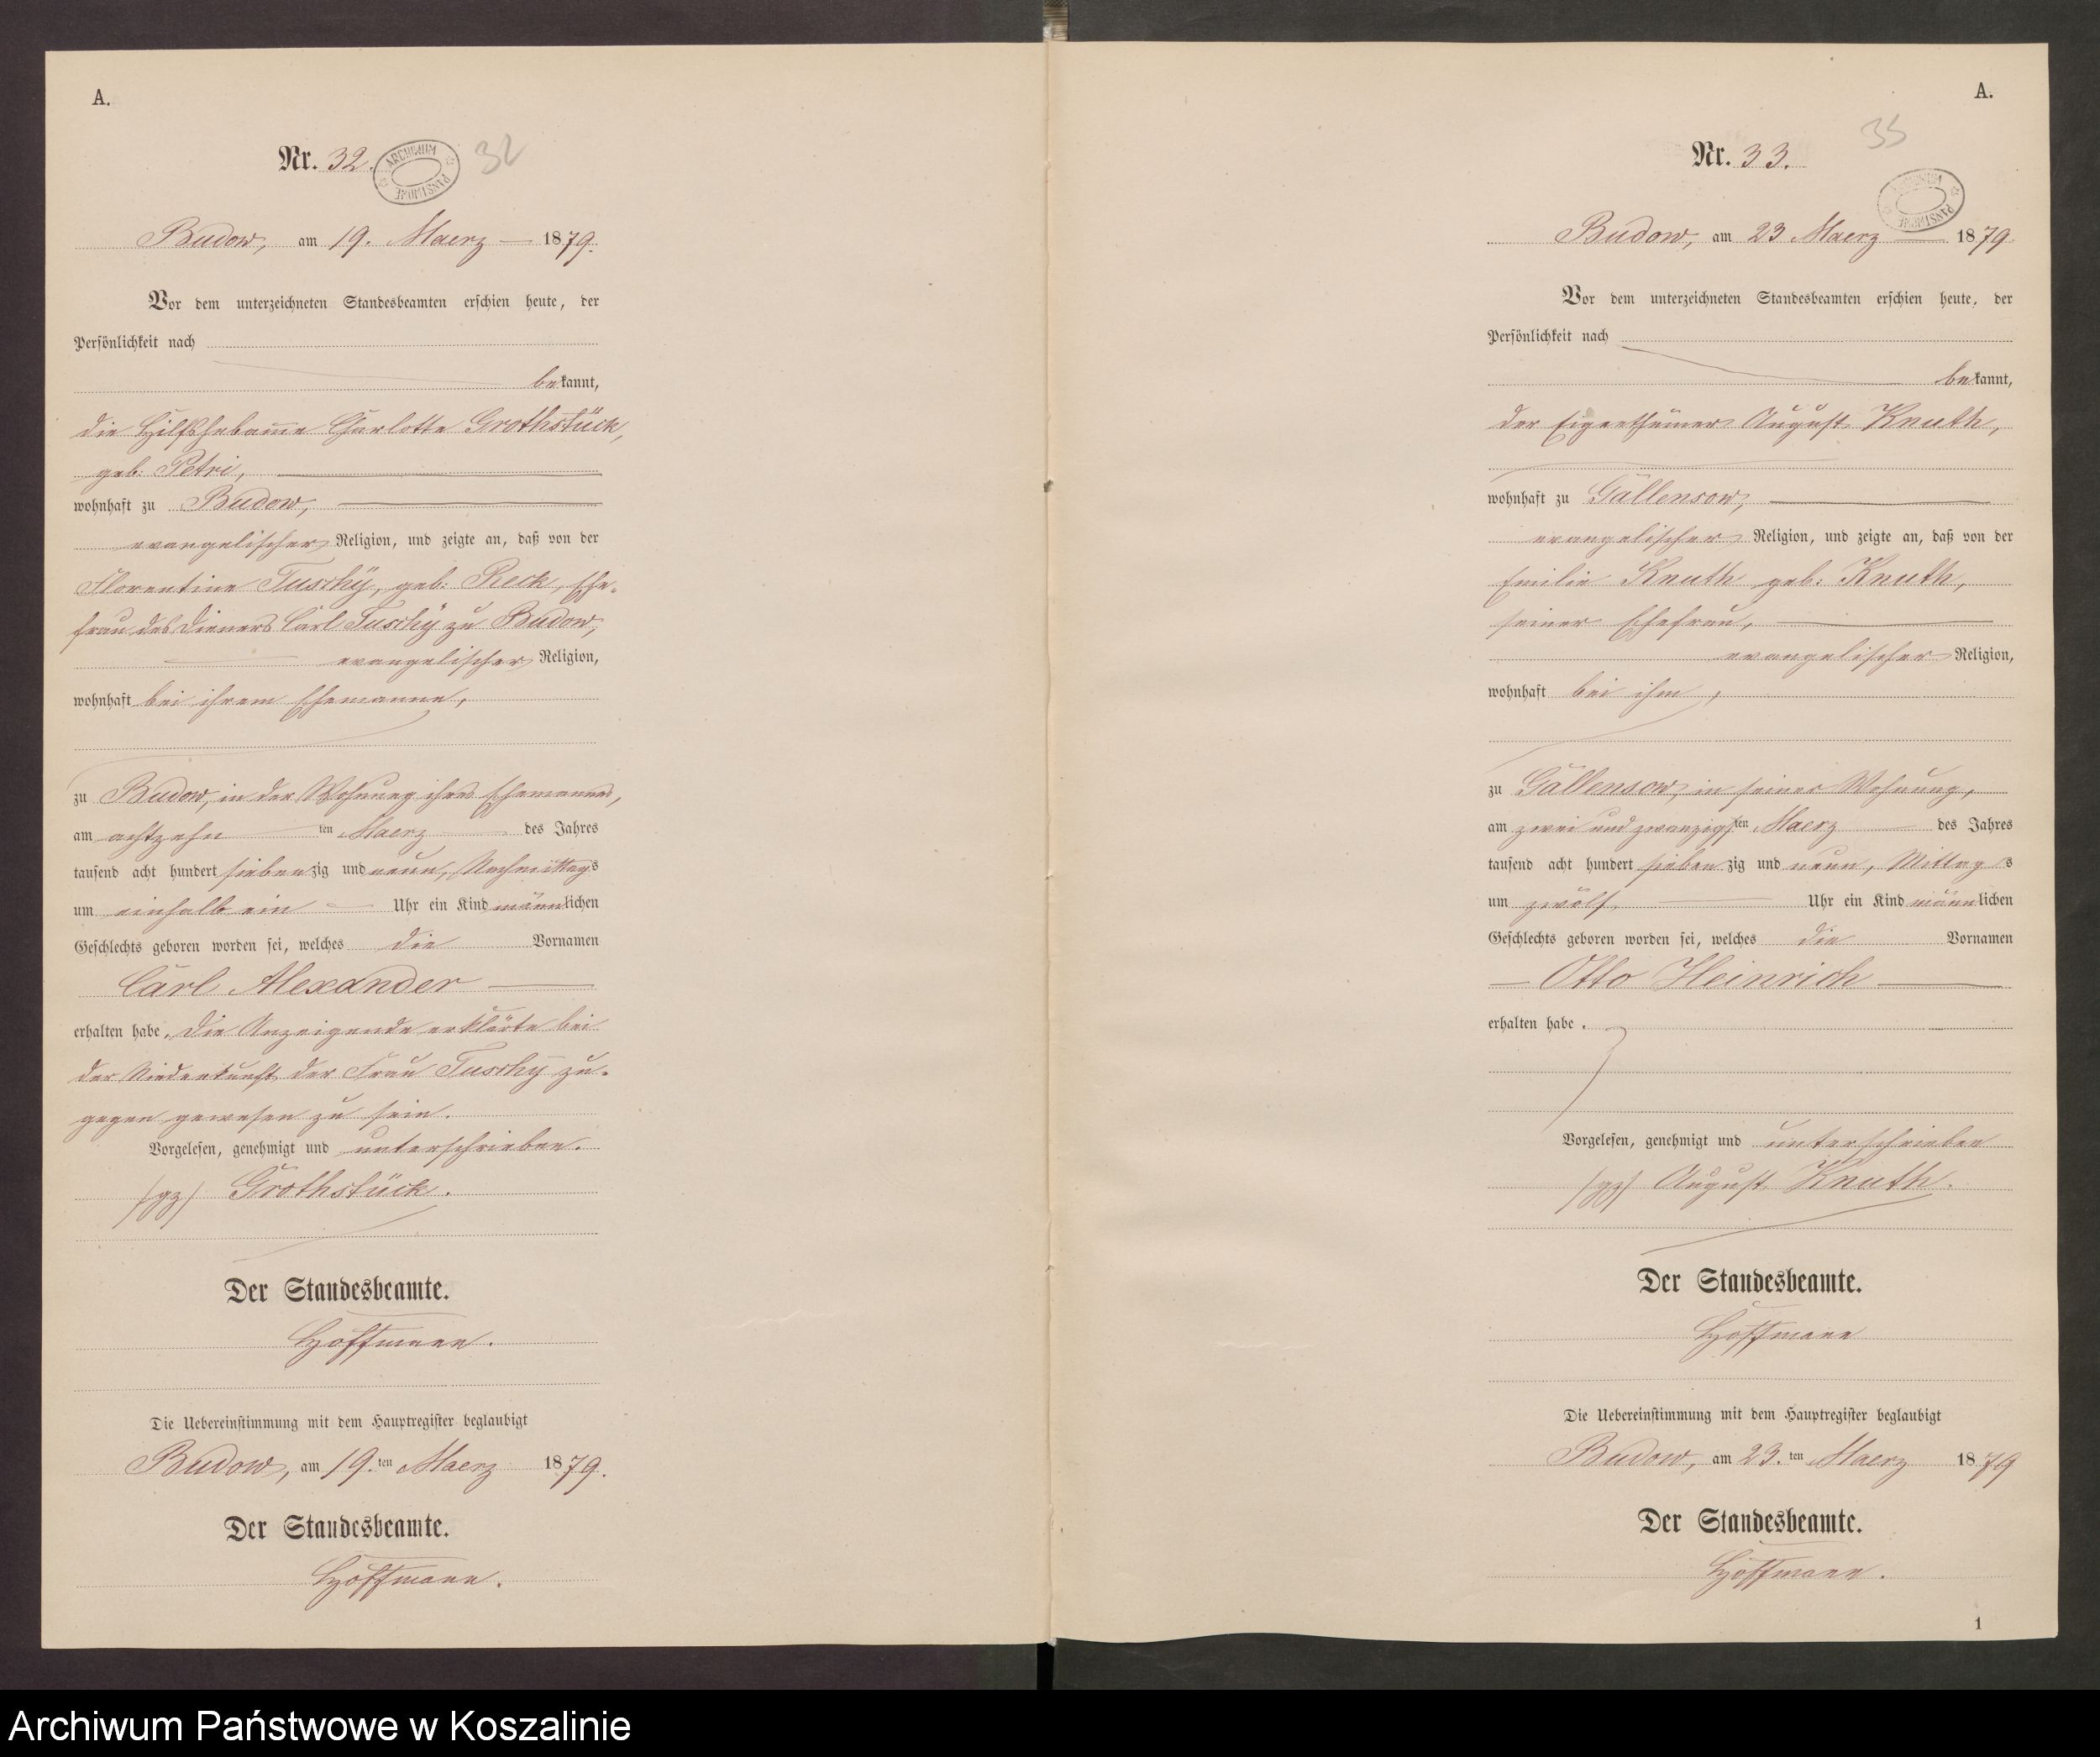 A.
Nr. 32.
ARCHIWUM PAŃSTWOWE
32
Budow, am 19. Maerz 1879.
Vor dem unterzeichneten Standesbeamten erschien heute, der
Persönlichkeit nach
bekannt,
die Hilfshebamme Charlotte Grothstück,
geb: Petri,
wohnhaft zu Budow,
evangelischer Religion, und zeigte an, daß von der
Florentine Tuschÿ, geb: Reck, Ehe-
frau des Dieners Carl Tuschÿ zu Budow,
evangelischer Religion,
wohnhaft bei ihrem Ehemanne,
zu Budow, in der Wohnung ihres Ehemannes,
am achtzehn ten Maerz des Jahres
tausend acht hundert siebenzig und neun, Nachmittags
um einhalb ein Uhr ein Kind männlichen
Geschlechts geboren worden sei, welches die Vornamen
Carl Alexander
erhalten habe. Die Anzeigende erklärte bei
der Niederkunft der Frau Tuschÿ zu-
gegen gewesen zu sein.
Vorgelesen, genehmigt und unterschrieben.
/gz/ Grothstück.
Der Standesbeamte.
Hoffmann.
Die Uebereinstimmung mit dem Hauptregister beglaubigt
Budow, am 19. ten Maerz 1879.
Der Standesbeamte.
Hoffmann.
A.
33
Nr. 33.
ARCHIWUM PAŃSTWOWE
Budow, am 23 Maerz 1879
Vor dem unterzeichneten Standesbeamten erschien heute, der
Persönlichkeit nach
bekannt,
der Eigenthümer August Knuth,
wohnhaft zu Gallensow,
evangelischer Religion, und zeigte an, daß von der
Emilie Knuth geb: Knuth,
seiner Ehefrau,
evangelischer Religion,
wohnhaft bei ihm,
zu Gallensow, in seiner Wohnung,
am zwei und zwanzigsten Maerz des Jahres
tausend acht hundert siebenzig und neun, Mittags
um zwölf Uhr ein Kind männlichen
Geschlechts geboren worden sei, welches die Vornamen
Otto Heinrich
erhalten habe.
Vorgelesen, genehmigt und unterschrieben
/gz/ August Knuth.
Der Standesbeamte.
Hoffmann
Die Uebereinstimmung mit dem Hauptregister beglaubigt
Budow, am 23. ten Maerz 1879
Der Standesbeamte.
Hoffmann.
1
Archiwum Państwowe w Koszalinie